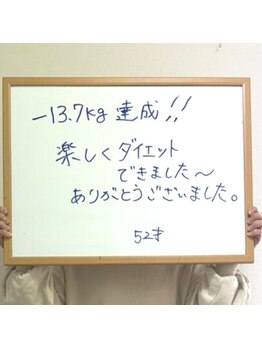 -13.7kg 達成!!
楽しくダイエット
できました〜
ありがとうございました。
52才